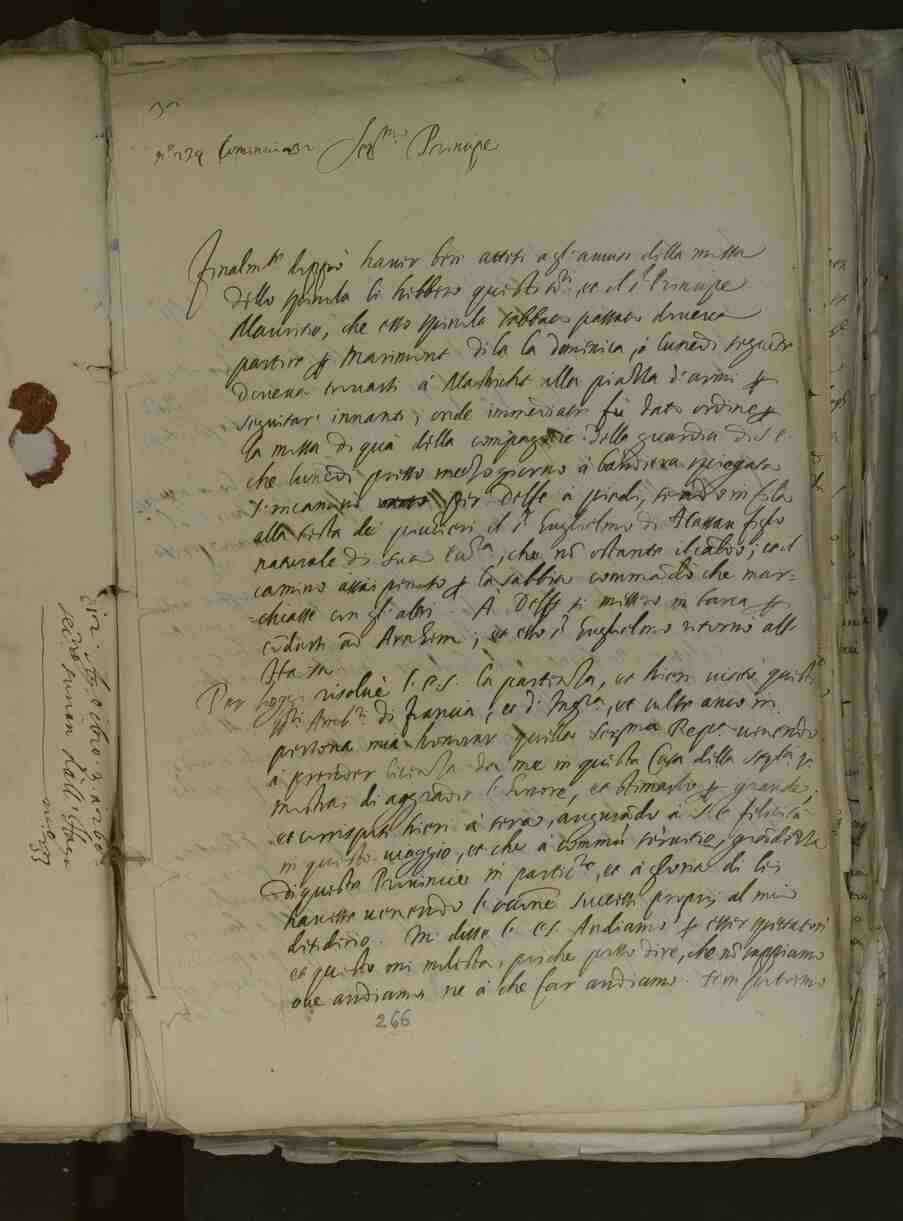 n.º 234 Comincia 32 Ser.mo Principe
Finalm.te doppo haver ben attesi agl'avvisi della mossa
dello spinola li hebbero questi S.ri, et il S.r Principe
Mauritio, che esso spinola sabbato passato doveva
partire per Marimont di la la dominica, ò lunedì seguente
doveva trovarsi à Mastricht alla piazza d'armi per
seguitar innanti, onde immediate fù dato ordine per
la mossa di quà delle compagnie della guardia di S. E.
che lunedì presso mezo giorno à bandiera spiegata
s'incaminò per Delfe à piedi, in fila
alla testa dei picchieri il S.r Guglielmo di Nassau figlio
naturale di sua Ecc.za, che nõ ostante il caldo, et il
camino assai penoso per la sabbia commandò che mar=
=chiasse con gl'altri. A Delft si misero in barca per
condursi ad Arnhem, et esso S.r Guglielmo ritornò all'
Haya.
Per hoggi risolvè S. E. la partenza, et hieri visitò questi
ss.ri Amb.ri di francia, et d'Ingh.ra, et volse anco in
persona mia honorar quella Ser.ma Rep.ca venendo
à prender licenza da me in questa Casa della Ser.tà V.
mostrai di aggradir l'honore, et stimarlo per grande,
et corrisposi hieri à sera, augurando à S. E. felicità
in questo viaggio, et che à commun servitio, grandezza
di queste Provincie in partic.re, et à gloria di lei
havesse venendo l'occ.ne successi proprij al mio
desiderio. Mi disse S. E. Andiamo per esser spettatori
et questo mi molesta, perche posso dire, che nõ sappiamo
ove andiamo, ne à che far andiamo.
266